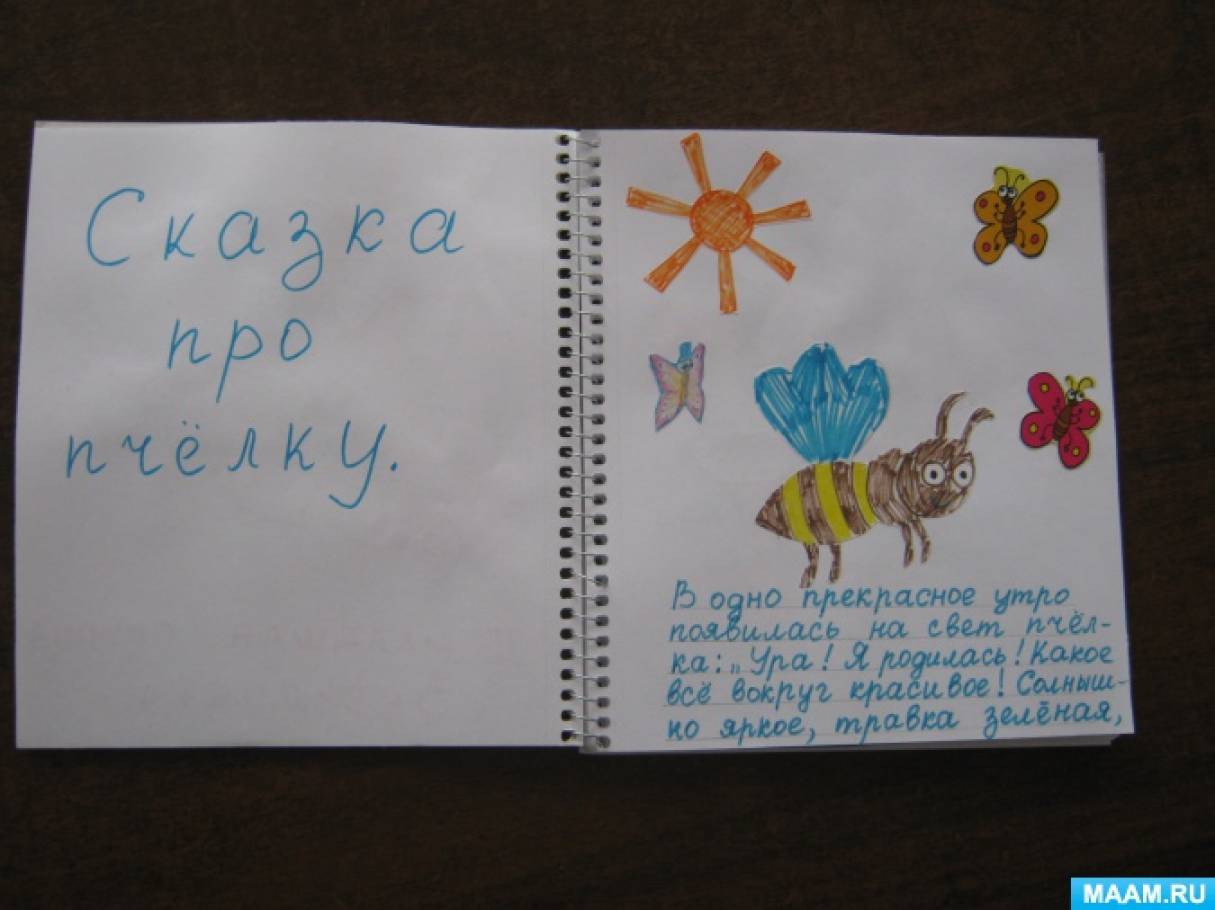 Сказка
про
пчёлку.
В одно прекрасное утро
появилась на свет пчёл-
ка: „Ура! Я родилась! Какое
всё вокруг красивое! Солныш-
ко яркое, травка зелёная,
MAAM.RU